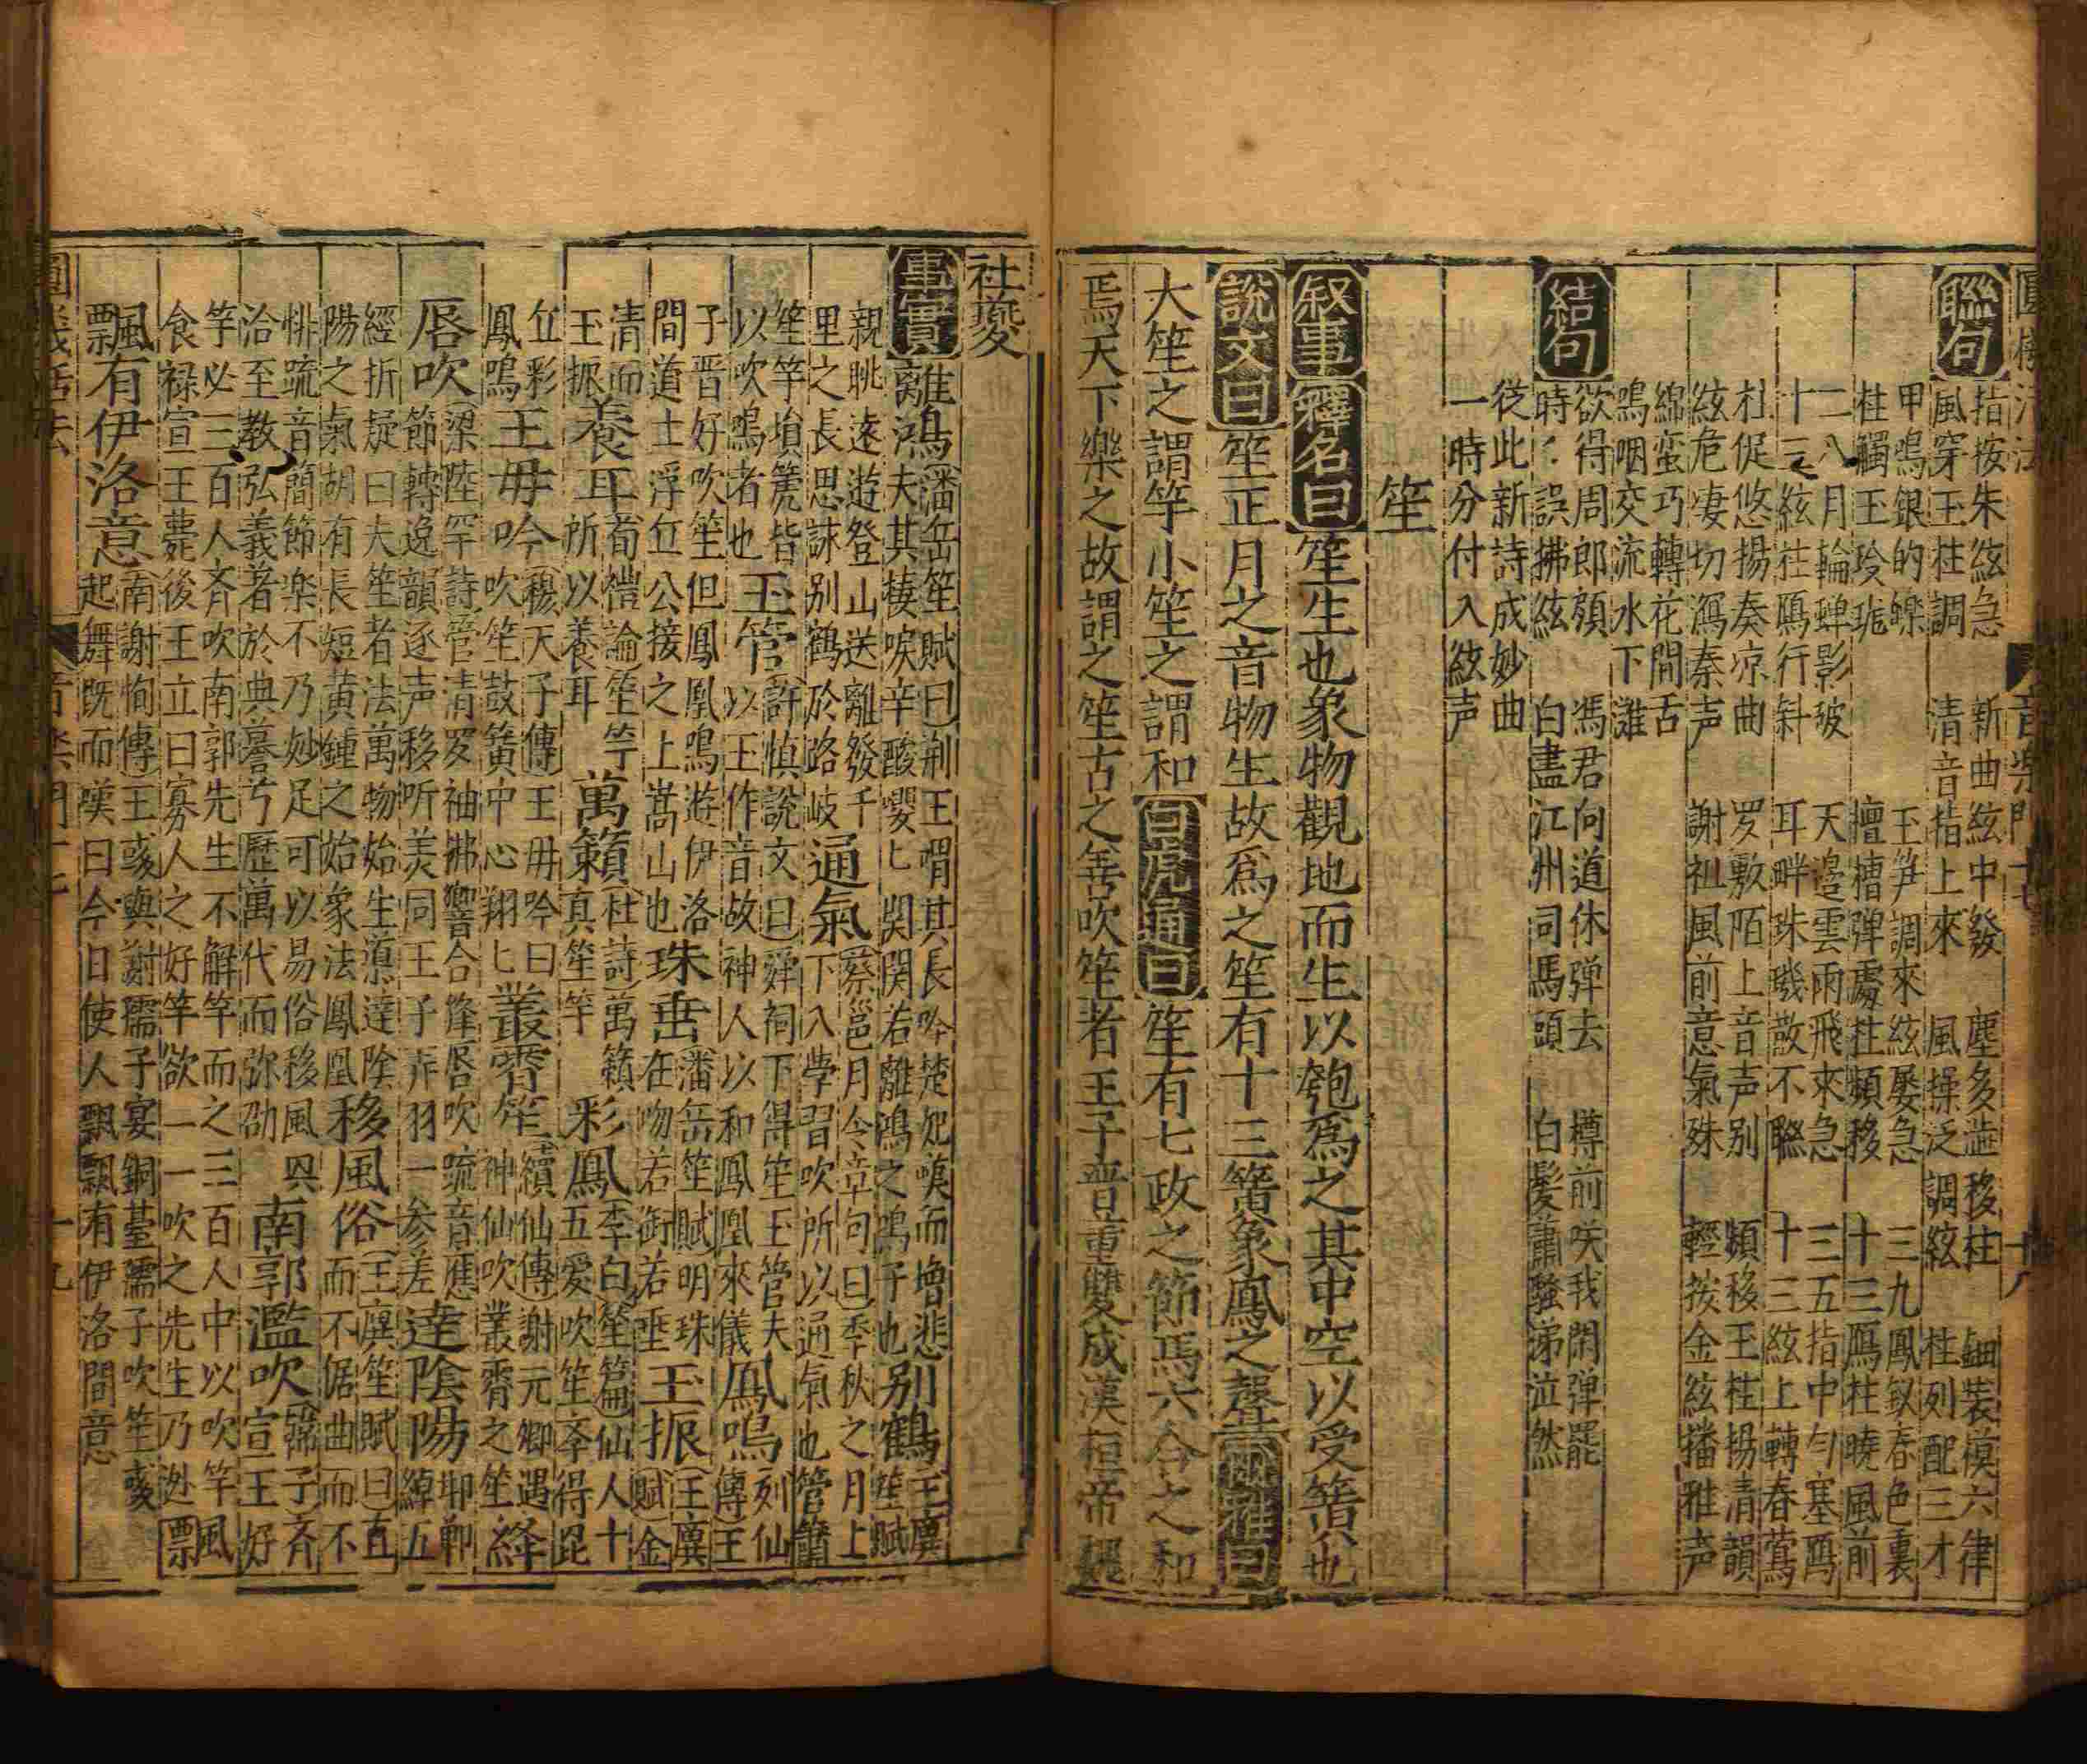 聯句
指按朱絃急 新曲絃中發 塵多遊移柱 鈿裝模六律
風穿玉柱調 清音指上來 風操泛調絃 柱列配三才
甲鳴銀的皪 玉笋調來絃屡急 三九鳳釵春色裏
柱觸玉玲珑 檀槽弹處柱頻移 十三鴈柱曉風前
二八月輪蟬影破 天邉雲雨飛來急 三五指中勻塞鴈
十三絃柱鴈行斜 耳畔珠璣散不聯 十三絃上轉春鶯
柱促悠揚奏凉曲 罗敷陌上音声别 頻移玉柱揚清韻
絃危凄切瀉秦声 謝祖風前意氣殊 輕按金絃播雅声
綿蛮巧轉花間舌
鳴咽交流水下灘
結句
欲得周郎顧 馮君向道休弹去 樽前咲我閑弹罷
時〻誤拂絃 白盡江州司馬頭 白髮蕭騷涕泣然
從此新詩成妙曲
一時分付入絃声
笙
叙事 釋名曰 笙生也象物觀地而生以匏爲之其中空以受簧也
說文曰 笙正月之音物生故爲之笙有十三簧象鳳之聲 爾雅曰
大笙之謂竽小笙之謂和 白虎通曰 笙有七政之節焉六合之和
焉天下樂之故謂之笙古之善吹笙者王子晋董雙成漢桓帝魏
杜夔
事實 離鴻 潘岳笙賦曰荆王喟其長吟楚妃嘆而增悲
夫其棲唳辛酸嚶匕関関若離鴻之鳴子也 别鶴 王廙笙賦
親眺遠遊登山送離發千
里之長思詠别鶴於路岐 通氣 蔡邕月令章句曰季秋之月上
下入學習吹所以通氣也管簫
笙竽塤篪皆
以吹鳴者也 玉管 許慎說文曰舜祠下得笙玉管夫
以玉作音故神人以和鳳凰來儀 鳳鳴 列仙傳王
子晋好吹笙但鳳凰鳴遊伊洛
間道士浮丘公接之上嵩山也 珠垂 潘岳笙賦明珠
在吻若銜若垂 玉振 王廙賦金
清而
玉振 養耳 荀愷論笙竽
所以養耳 萬籟 杜詩萬籟
真笙竽 彩鳳 李白笙篇仙人十
五愛吹笙卒得崑
丘彩
鳳鳴 王母吟 穆天子傳王母吟曰
吹笙鼓簧中心翔匕 叢霄笙 續仙傳謝元卿遇
神仙吹叢霄之笙 絳
唇吹 梁陸罕詩管清罗袖拂響合絳唇吹疏音應
節轉逸韻逐声移听美同王子弄羽一参差 達陰陽 耶鄲
綽五
經折疑曰夫笙者法萬物始生源達陰
陽之氣胡有長短黄鍾之始象法鳳凰 移風俗 王廙笙賦曰直
而不倨曲而不
悱疏音簡節楽不乃妙足可以易俗移風與
洽至教弘義著於典謩兮歷萬代而弥劭 南郭濫吹 韓子齊
宣王好
竽必三百人斉吹南郭先生不解竽而之三百人中以吹竽
食禄宣王薨後王立曰寡人之好竽欲一一吹之先生乃迯 風
飄有伊洛意 南謝恂傳王彧與謝孺子宴銅臺孺子吹笙彧
起舞既而嘆曰今日使人飄飄有伊洛間意